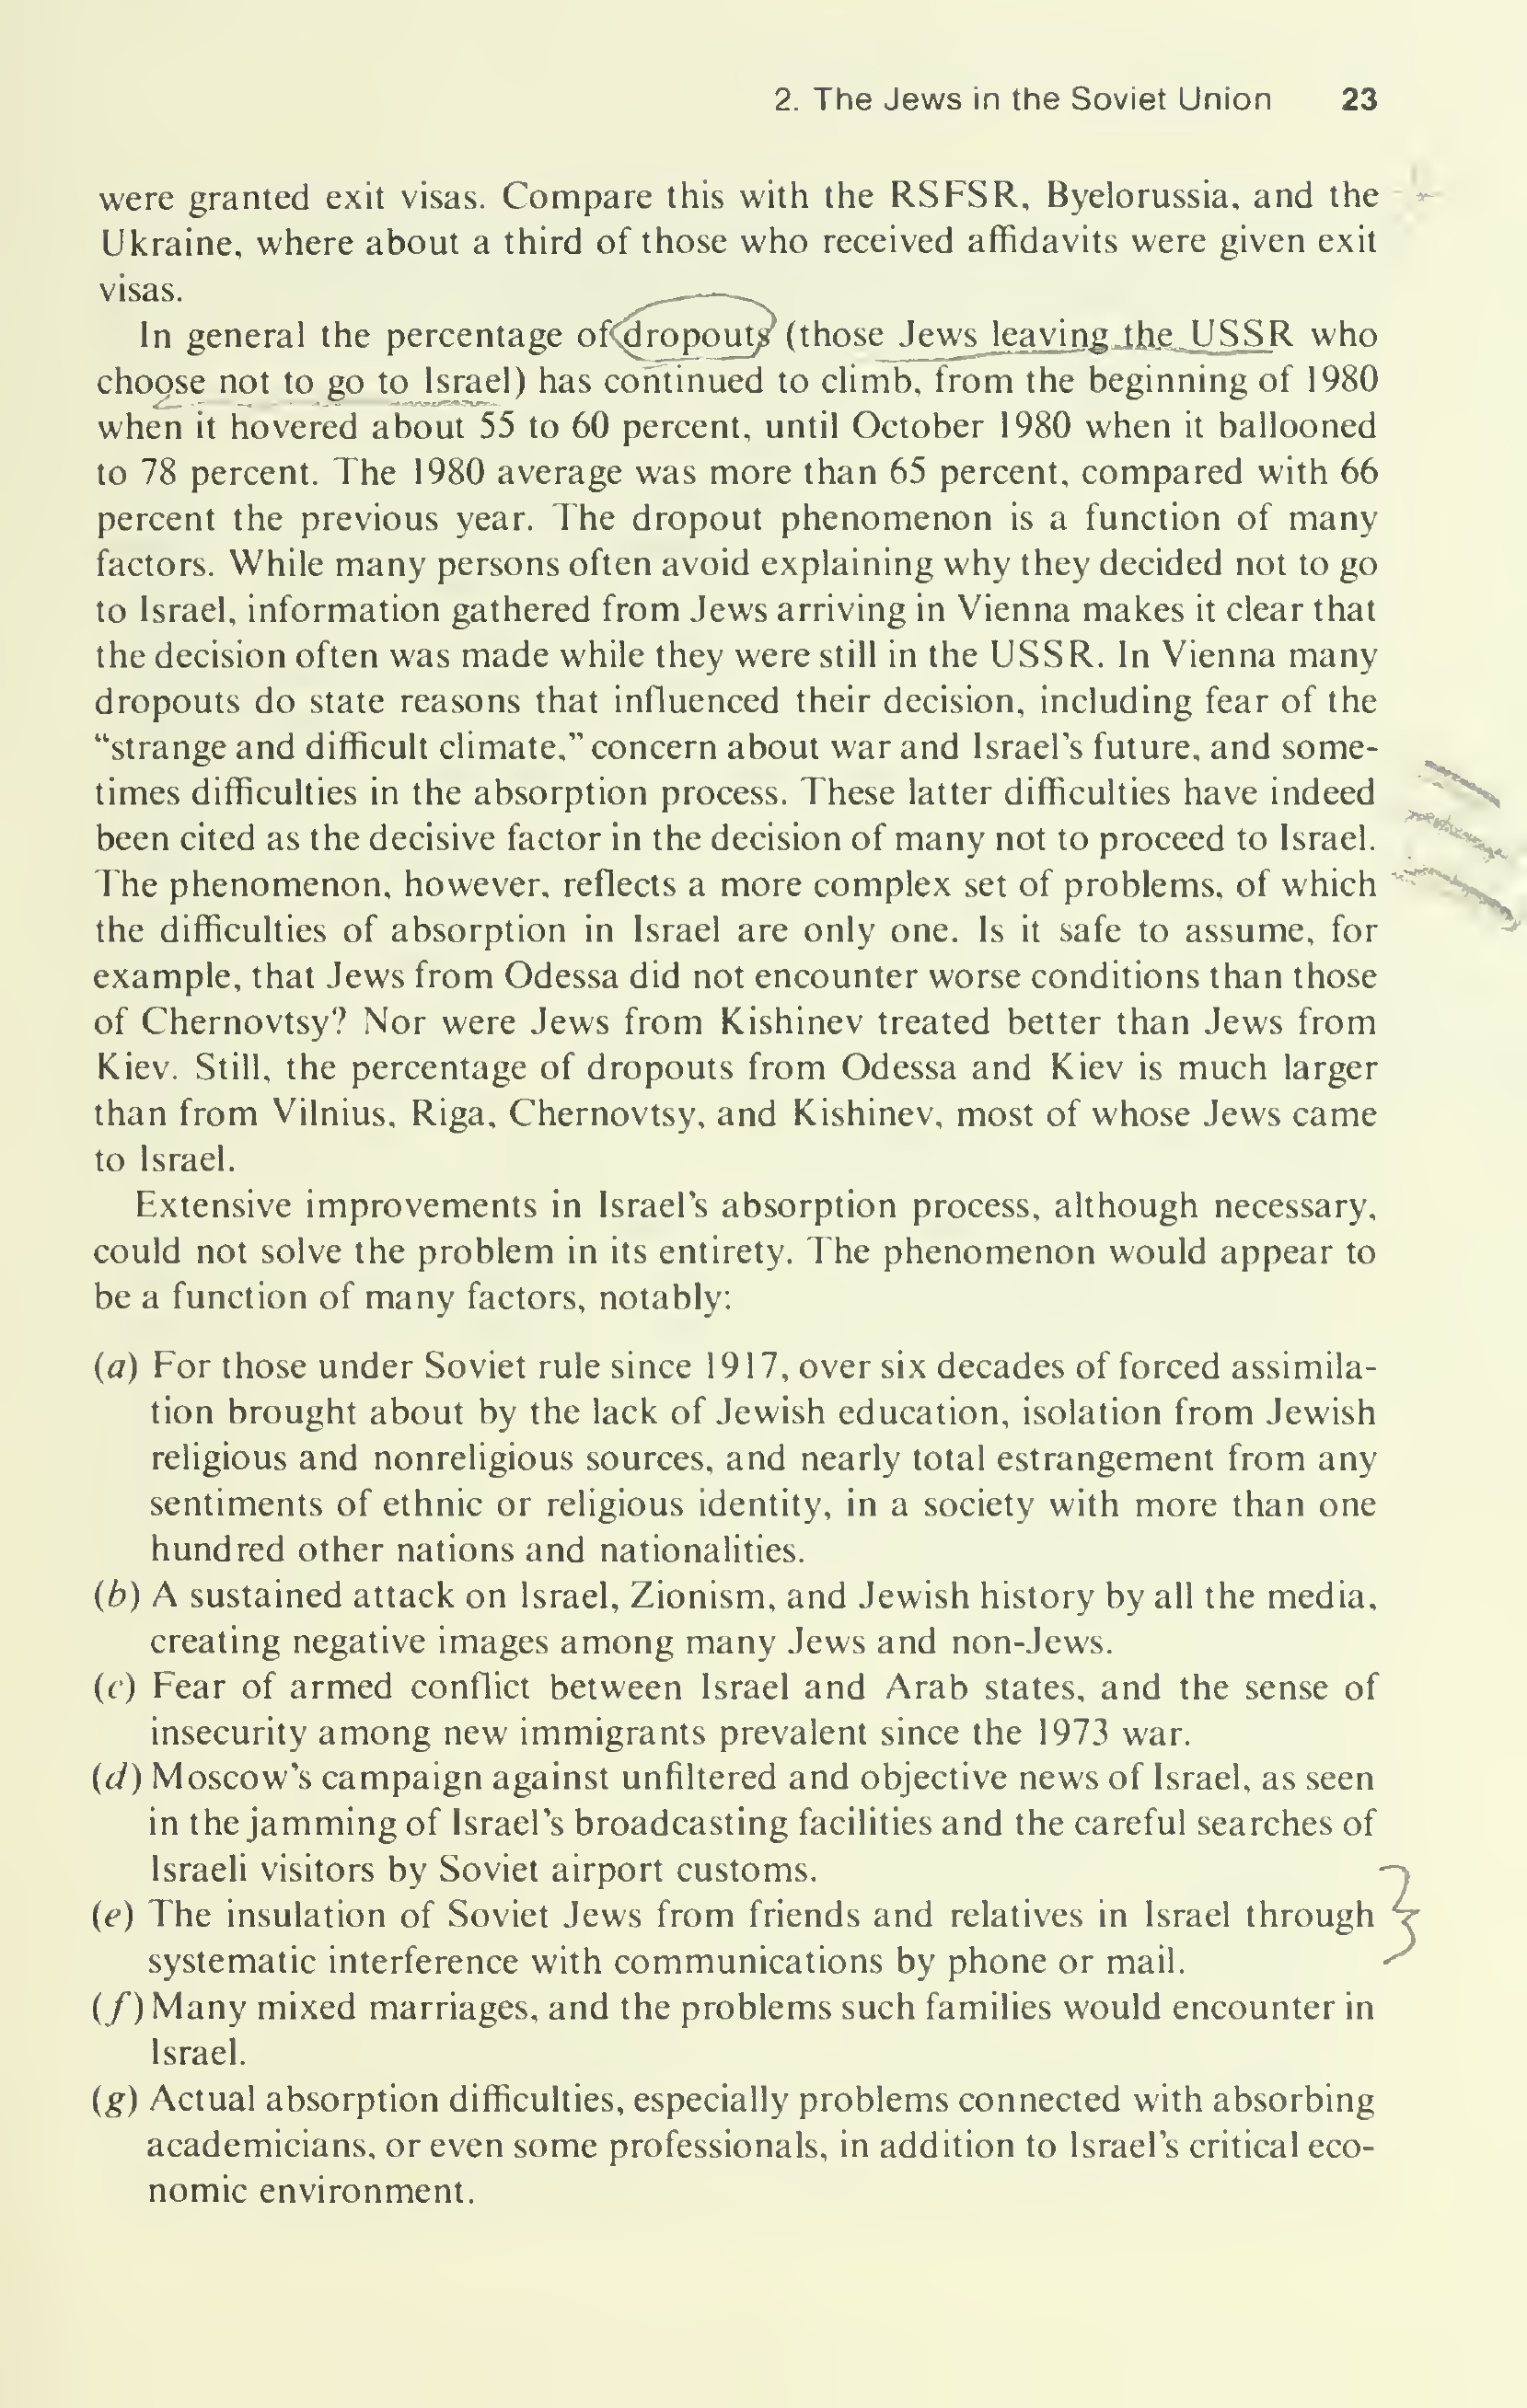 2. The Jews in the Soviet Union 23
were granted exit visas. Compare this with the RSFSR, Byelorussia, and the
Ukraine, where about a third of those who received affidavits were given exit
visas.
In general the percentage of dropouts (those Jews leaving the USSR who
choose not to go to Israel) has continued to climb, from the beginning of 1980
when it hovered about 55 to 60 percent, until October 1980 when it ballooned
to 78 percent. The 1980 average was more than 65 percent, compared with 66
percent the previous year. The dropout phenomenon is a function of many
factors. While many persons often avoid explaining why they decided not to go
to Israel, information gathered from Jews arriving in Vienna makes it clear that
the decision often was made while they were still in the USSR. In Vienna many
dropouts do state reasons that influenced their decision, including fear of the
“strange and difficult climate,” concern about war and Israel’s future, and some-
times difficulties in the absorption process. These latter difficulties have indeed
been cited as the decisive factor in the decision of many not to proceed to Israel.
The phenomenon, however, reflects a more complex set of problems, of which
the difficulties of absorption in Israel are only one. Is it safe to assume, for
example, that Jews from Odessa did not encounter worse conditions than those
of Chernovtsy? Nor were Jews from Kishinev treated better than Jews from
Kiev. Still, the percentage of dropouts from Odessa and Kiev is much larger
than from Vilnius, Riga, Chernovtsy, and Kishinev, most of whose Jews came
to Israel.
Extensive improvements in Israel’s absorption process, although necessary,
could not solve the problem in its entirety. The phenomenon would appear to
be a function of many factors, notably:
(a) For those under Soviet rule since 1917, over six decades of forced assimila-
tion brought about by the lack of Jewish education, isolation from Jewish
religious and nonreligious sources, and nearly total estrangement from any
sentiments of ethnic or religious identity, in a society with more than one
hundred other nations and nationalities.
(b) A sustained attack on Israel, Zionism, and Jewish history by all the media,
creating negative images among many Jews and non-Jews.
(c) Fear of armed conflict between Israel and Arab states, and the sense of
insecurity among new immigrants prevalent since the 1973 war.
(d) Moscow’s campaign against unfiltered and objective news of Israel, as seen
in the jamming of Israel’s broadcasting facilities and the careful searches of
Israeli visitors by Soviet airport customs.
(e) The insulation of Soviet Jews from friends and relatives in Israel through
systematic interference with communications by phone or mail.
(f) Many mixed marriages, and the problems such families would encounter in
Israel.
(g) Actual absorption difficulties, especially problems connected with absorbing
academicians, or even some professionals, in addition to Israel’s critical eco-
nomic environment.